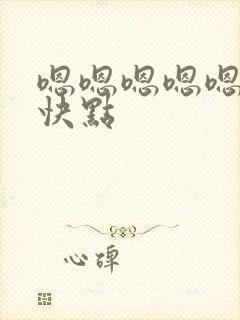 嗯嗯嗯嗯嗯
快點
心碎